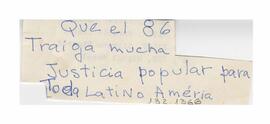 Que el 86
Traiga mucha
Justicia popular para
Toda Latino Améria
132 1366